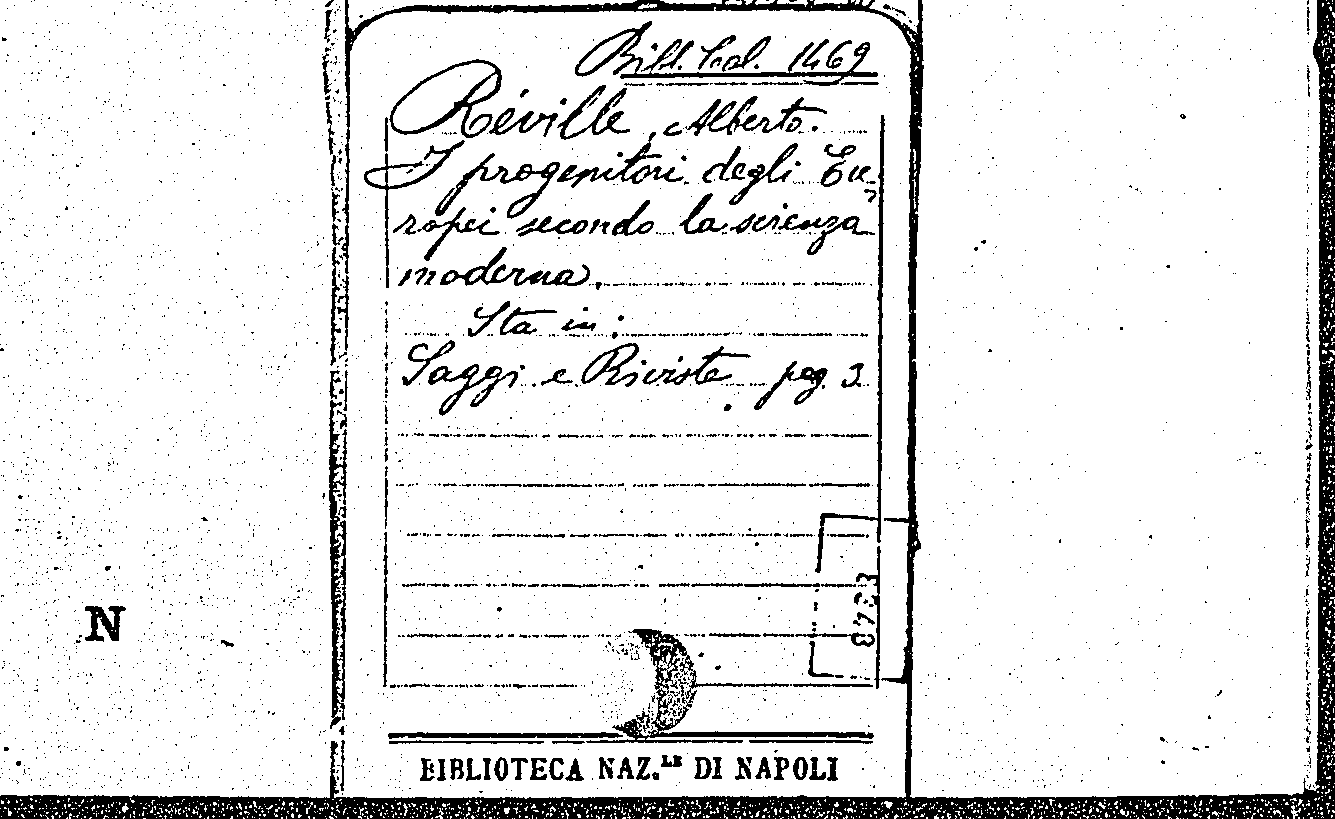 Bibl. Cal. 1469
Réville, Alberto.
I progenitori degli Eu-
ropei secondo la scienza
moderna.
Sta in:
Saggi e Riviste pag 3
N
BIBLIOTECA NAZ.LE DI NAPOLI